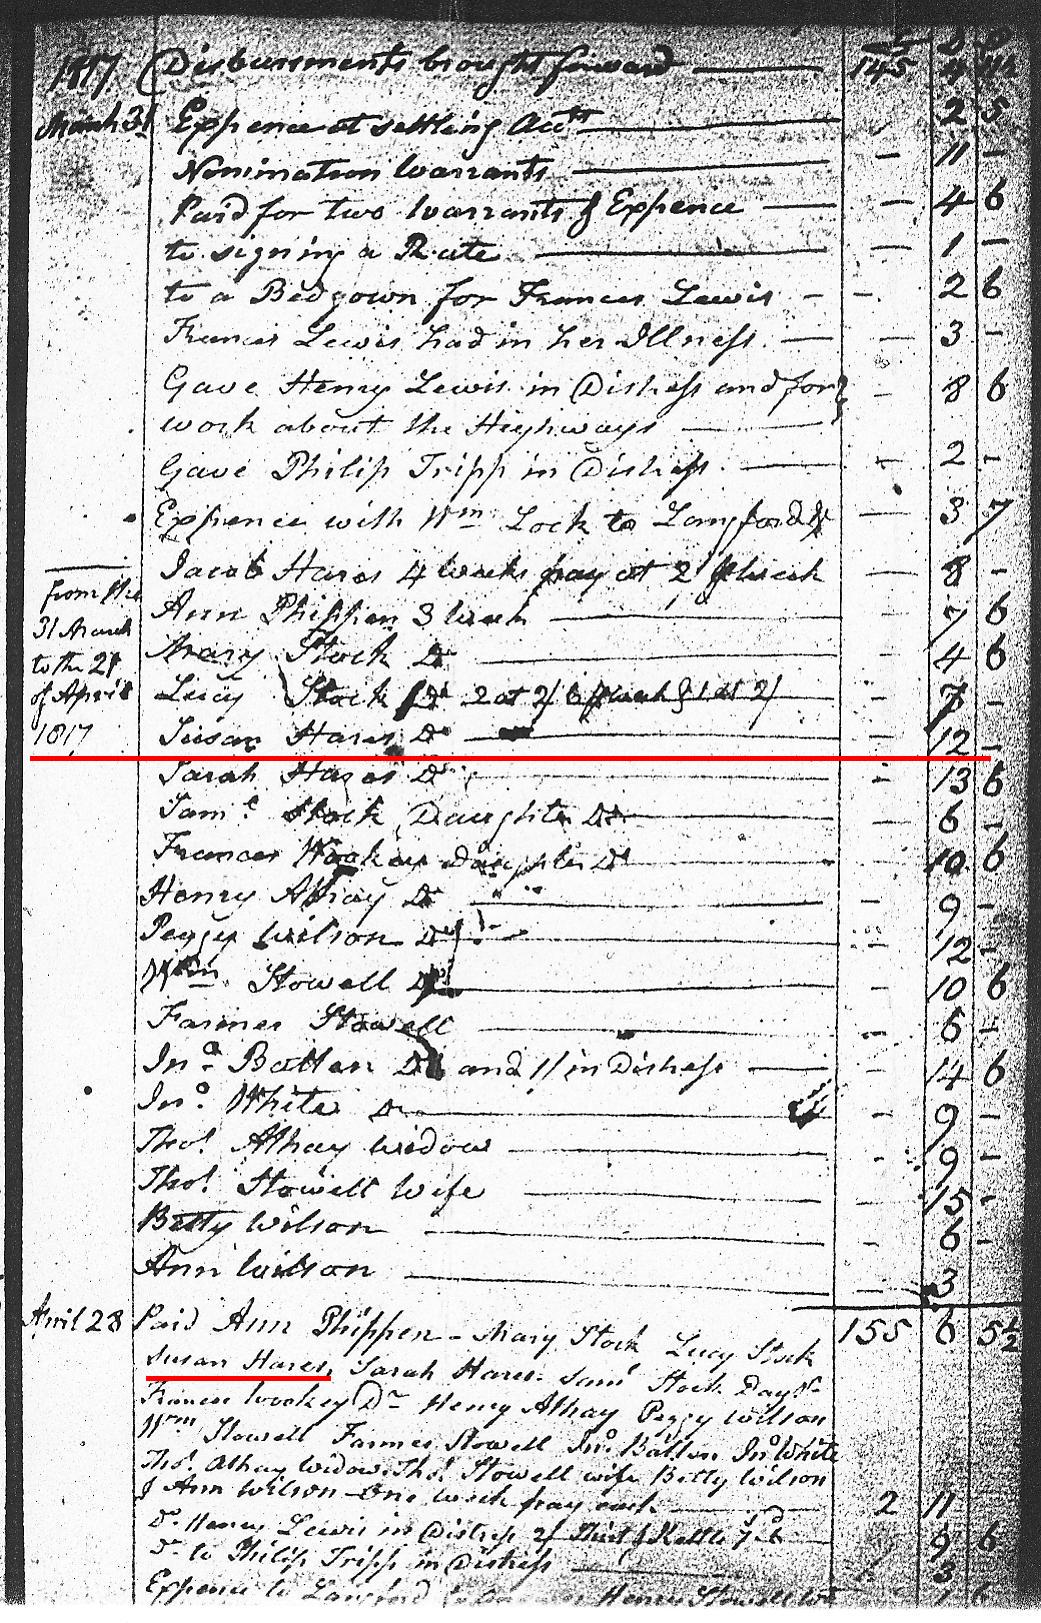 1817 Disbursments brought forward 145 4 11½
March 31 Expence at settling Accts 2 5
Nomination Warrants — 11 —
Paid for two Warrants & Expence — 4 6
to signing a Rate — 1 —
to a Bedgown for Frances Lewis — 2 6
Frances Lewis had in her Illness — 3 —
Gave Henry Lewis in Distress and for — 8 6
work about the Highways
Gave Philip Tripp in Distress — 2 —
Expence with Wm Lock to Langford — 3 7
Jacob Hares 4 weeks pay at 2/ P week — 8 —
from the 31 March to the 21 of April 1817
Ann Phippen 3 Week — 7 6
Mary Stock Do — 4 6
Lucy Stock Do 2 at 2/6 P week & 1 at 2/ — 7 —
Susan Hares Do — 12 —
Sarah Hares Do — 13 6
Saml Stock Daughter Do — 6 —
Frances Wookey daughter Do — 10 6
Henry Athay Do — 9 —
Peggy Wilson Do — 12 —
Wm Stowell Do — 10 6
Farmer Stowell — 6 —
Jno Batten Do and 1/ in Distress — 14 6
Jno White Do — 9 —
Thos Athay Widow — 9 —
Thos Stowell Wife — 15 —
Betty Wilson — 6 —
Ann Wilson — 3
155 6 5½
April 28 Paid Ann Phippen - Mary Stock Lucy Stock
Susan Hares, Sarah Hares Saml Stock Dayr
Frances Wookey Dr Henry Athay Peggy Wilson
Wm Stowell Farmer Stowell Jno Batten Jno White
Thos Athay Widow Thos Stowell wife Betty Wilson
& Ann Wilson - One week pay each 2 11
Do Henry Lewis in Distress 2/ & Kettle 7 6 9 6
Do to Philip Tripp in Distress 3
Expence to Langford Henry Stowell